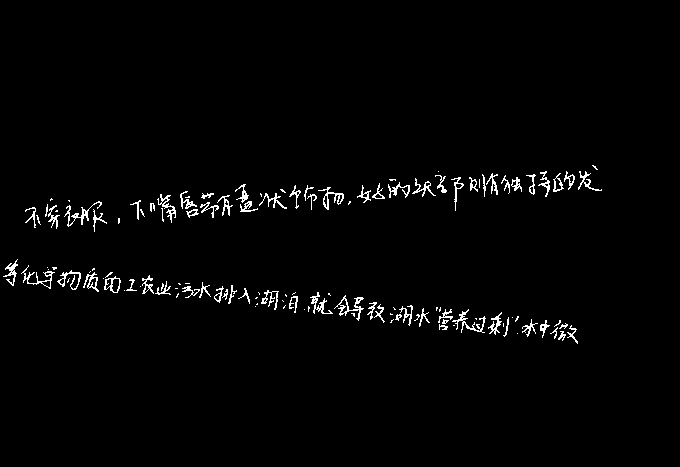 不穿衣服，下嘴唇带有盖状饰物，她的头部则有独特的发
等化学物质的工农业污水排入湖泊，就会导致湖水“营养过剩”.水中微